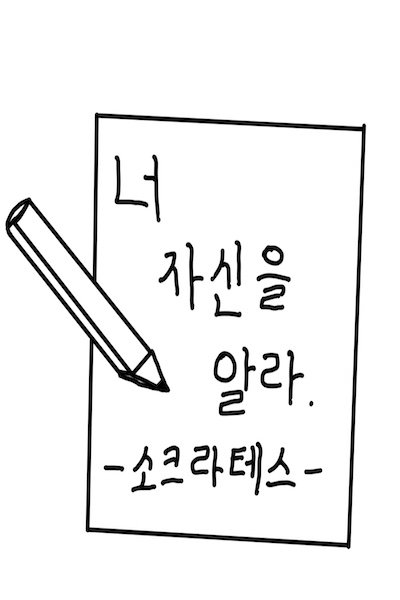 너
자신을
알라.
-소크라테스-